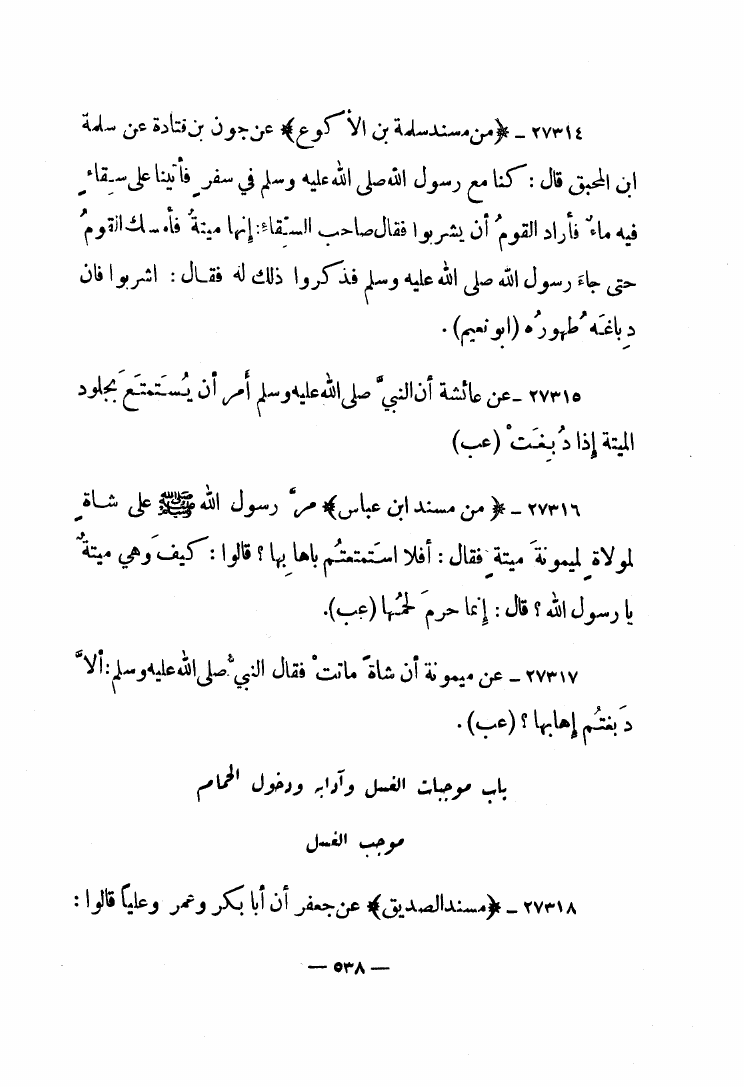 ٢٧٣١٤ – ﴿من مسند سلمة بن الأكوع﴾ عن جون بن قتادة عن سلمة
ابن المحبق قال : كنا مع رسول الله صلى الله عليه وسلم في سفرٍ فأتينا على سِقاءٍ
فيه ماءٌ فأراد القومُ أن يشربوا فقال صاحب السِّقاءِ: إنها ميتةٌ فأمسك القومُ
حتى جاءَ رسول الله صلى الله عليه وسلم فذكروا ذلك له فقال : اشربوا فان
دِباغَه ُطهورُه (ابو نعيم) .
٢٧٣١٥ – عن عائشة أن النبيَّ صلى الله عليه وسلم أمر أن يُستَمتَعَ بجلود
الميتة إذا دُبِغَتْ (عب)
٢٧٣١٦ – ﴿ من مسند ابن عباس﴾ مرَّ رسول الله ﷺ على شاةٍ
لمولاةٍ لميمونةَ ميتةٍ فقال : أفلا استَمتعتُم باهابِها ؟ قالوا : كيفَ وهي ميتةٌ
يا رسول الله ؟ قال : إنما حرمَ لحمُها (عب).
٢٧٣١٧ – عن ميمونة أن شاةً ماتتْ فقال النبيُّ صلى الله عليه وسلم : ألاَّ
دَبغتُم إهابها ؟ (عب) .
باب موجبات الغسل وآدابه ودخول الحمام
موجب الغسل
٢٧٣١٨ – ﴿مسند الصديق﴾ عن جعفر أن أبا بكر وعمر وعلياً قالوا :
— ٥٣٨ —